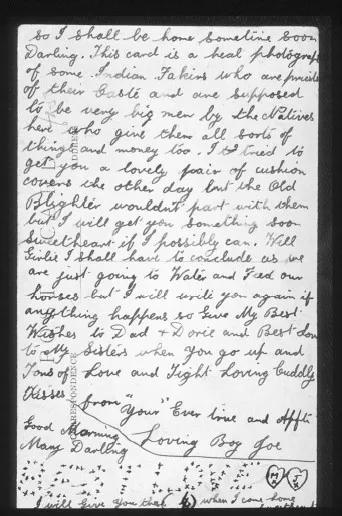 so I shall be home sometime soon
Darling. This card is a heal photograph
of some Indian Fakirs who are priests
of their Caste and are supposed
to be very big men by the Natives
here who give them all sorts of
things and money too. I tried to
get you a lovely pair of cushion
covers the other day but the Old
Blighter wouldn't part with them
but I will get you something soon
Sweetheart if I possibly can. Well
Girlie I shall have to conclude as we
are just going to Water and Feed our
horses but I will write you again if
anything happens so Give My Best
Wishes to Dad + Dorie and Best
to My Sisters when you go up and
Tons of Love and Tight Loving Cuddly
Kisses from "Your" Ever true and Affte
Good Morning Loving Boy Joe
Mary Darling
M J
I will Give you these when I come home
CORRESPONDENCE